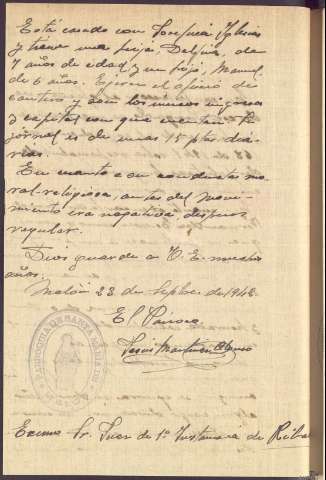 Está casado con Josefina Iglesias
y tiene una hija Delfina, de
7 años de edad y un hijo, Manuel
de 6 años. Ejerce el oficio de
cantero y son los unicos ingresos
y capital con que cuentan. El
jornal es de unas 15 ptas. dia-
rias.
En cuanto a su conducta mo-
ral-religiosa, antes del Movi-
miento era negativa, despues
regular.
Dios guarde a V. E. muchos
años.
Melón 23 de Sepbre. de 1942
El Párroco
Jesús Martínez
PARROQUIA DE SANTA MARIA DE
Excmo. Sr. Juez de 1ª Instancia de Ribad